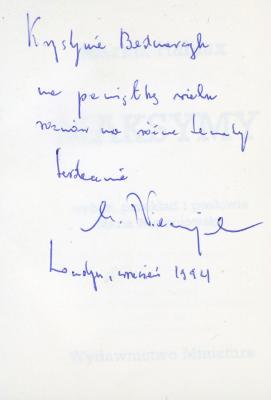 Krystynie Bednarczyk
na pamiątkę wielu
rozmów na różne tematy
serdecznie
Londyn, wrzesień 1994
MAKSYMY
Wydawnictwo Miniatura